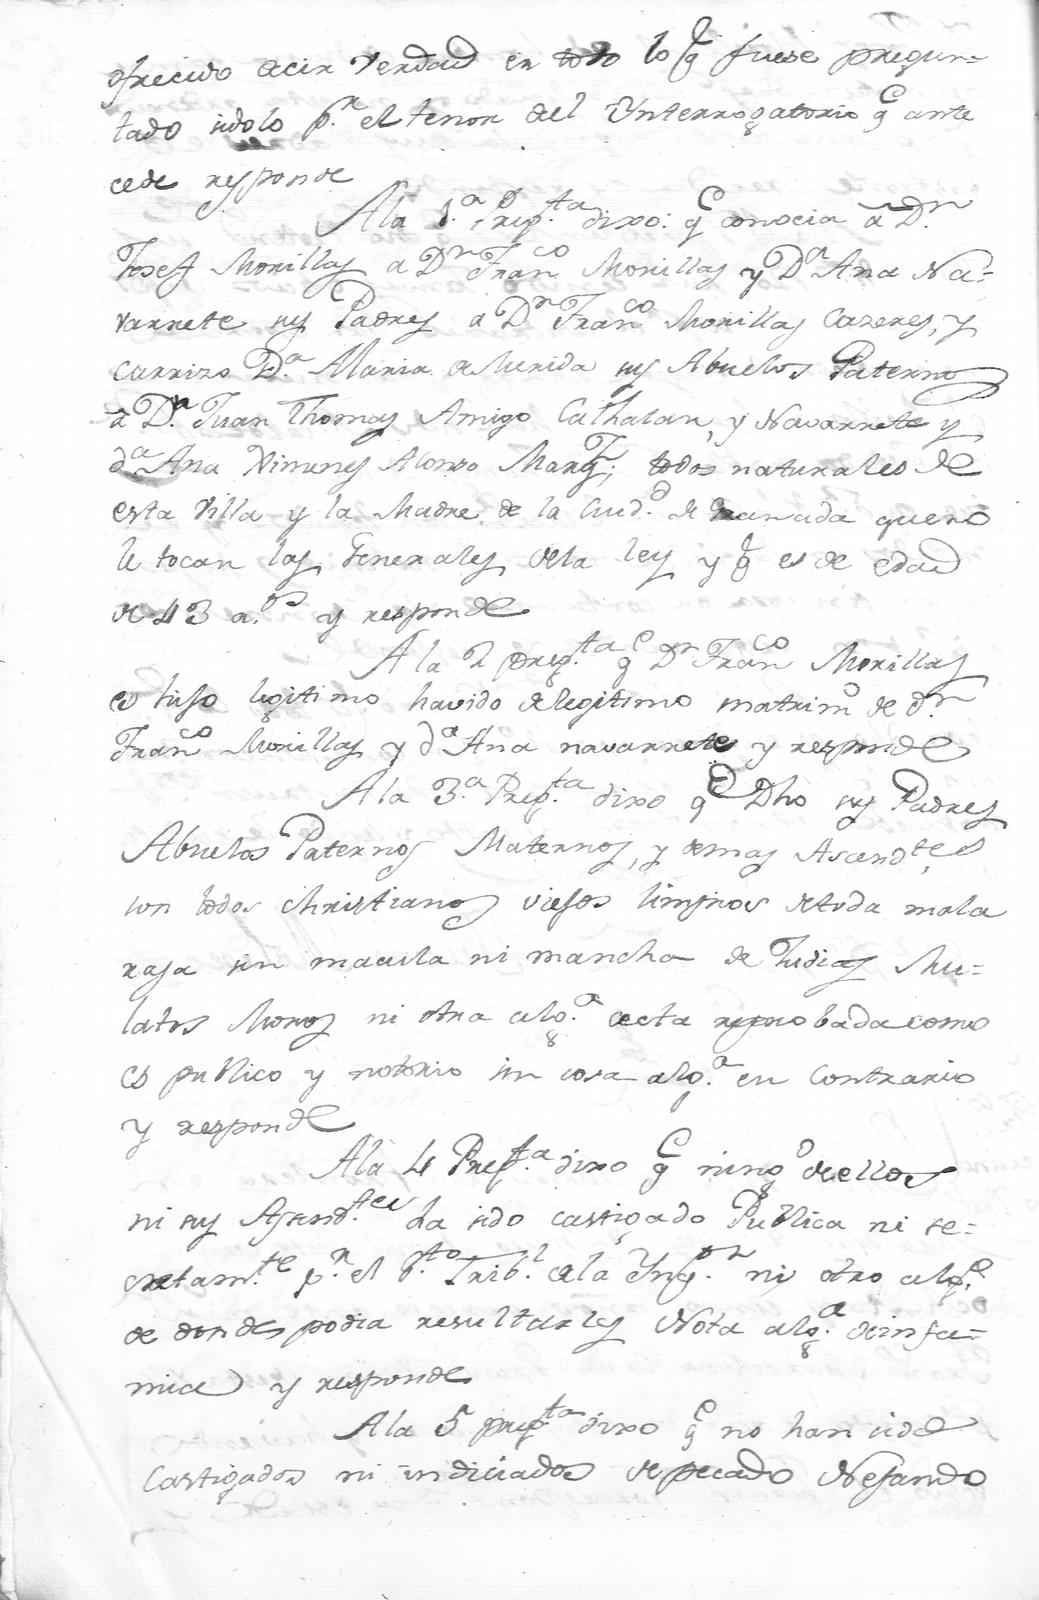 ofrecido acir Verdad en todo lo q fuese pregun-
tado sidolo p.r el tenor del Ynterrogatorio q ante
cede responde
Ala 1.a Preg.ta dixo: q conocia a D.n
Josef Morillas a D.n Fran.co Morillas y D.a Ana Na-
varrete sus Padres a D.n Fran.co Morillas Cazeres, y
Carrizo D.a Maria Merida sus Abuelos Paternos
a D.n Juan Thomas Amigo Cathalan, y Navarrete y
d.a Ana Ximenes Alonso Marq.z; todos naturales de
esta Villa y la Madre de la Ciud.d de Granada queno
le tocan las Generales dela ley y q es de edad
de 43 a.os y responde
Ala 2 preg.ta q D.n Fran.co Morillas
es hijo legitimo havido delegitimo matrim.o de d.n
Fran.co Morillas y d.a Ana navarrete y responde
Ala 3.a Preg.ta dixo q Dho sus Padres
Abuelos Paternos Maternos, y demas Ascend.tes
son todos christianos viejos limpios detoda mala
rasa sin macula ni mancha de Judios Mu-
latos Moros ni otra alg.a secta reprobada como
es publico y notorio sin cosa alg.a en Contrario
y responde
Ala 4 Preg.ta dixo q ning.o deellos
ni sus Asend.tes ha sido castigado Publica ni se-
cretam.te p.r el S.to Trib.l dela Ynq.on ni otro alg.o
de donde podia resultarles Nota alg.a deinfa-
mia y responde
Ala 5 preg.ta dixo q no han sido
Castigados ni indiciados de pecado Nefando